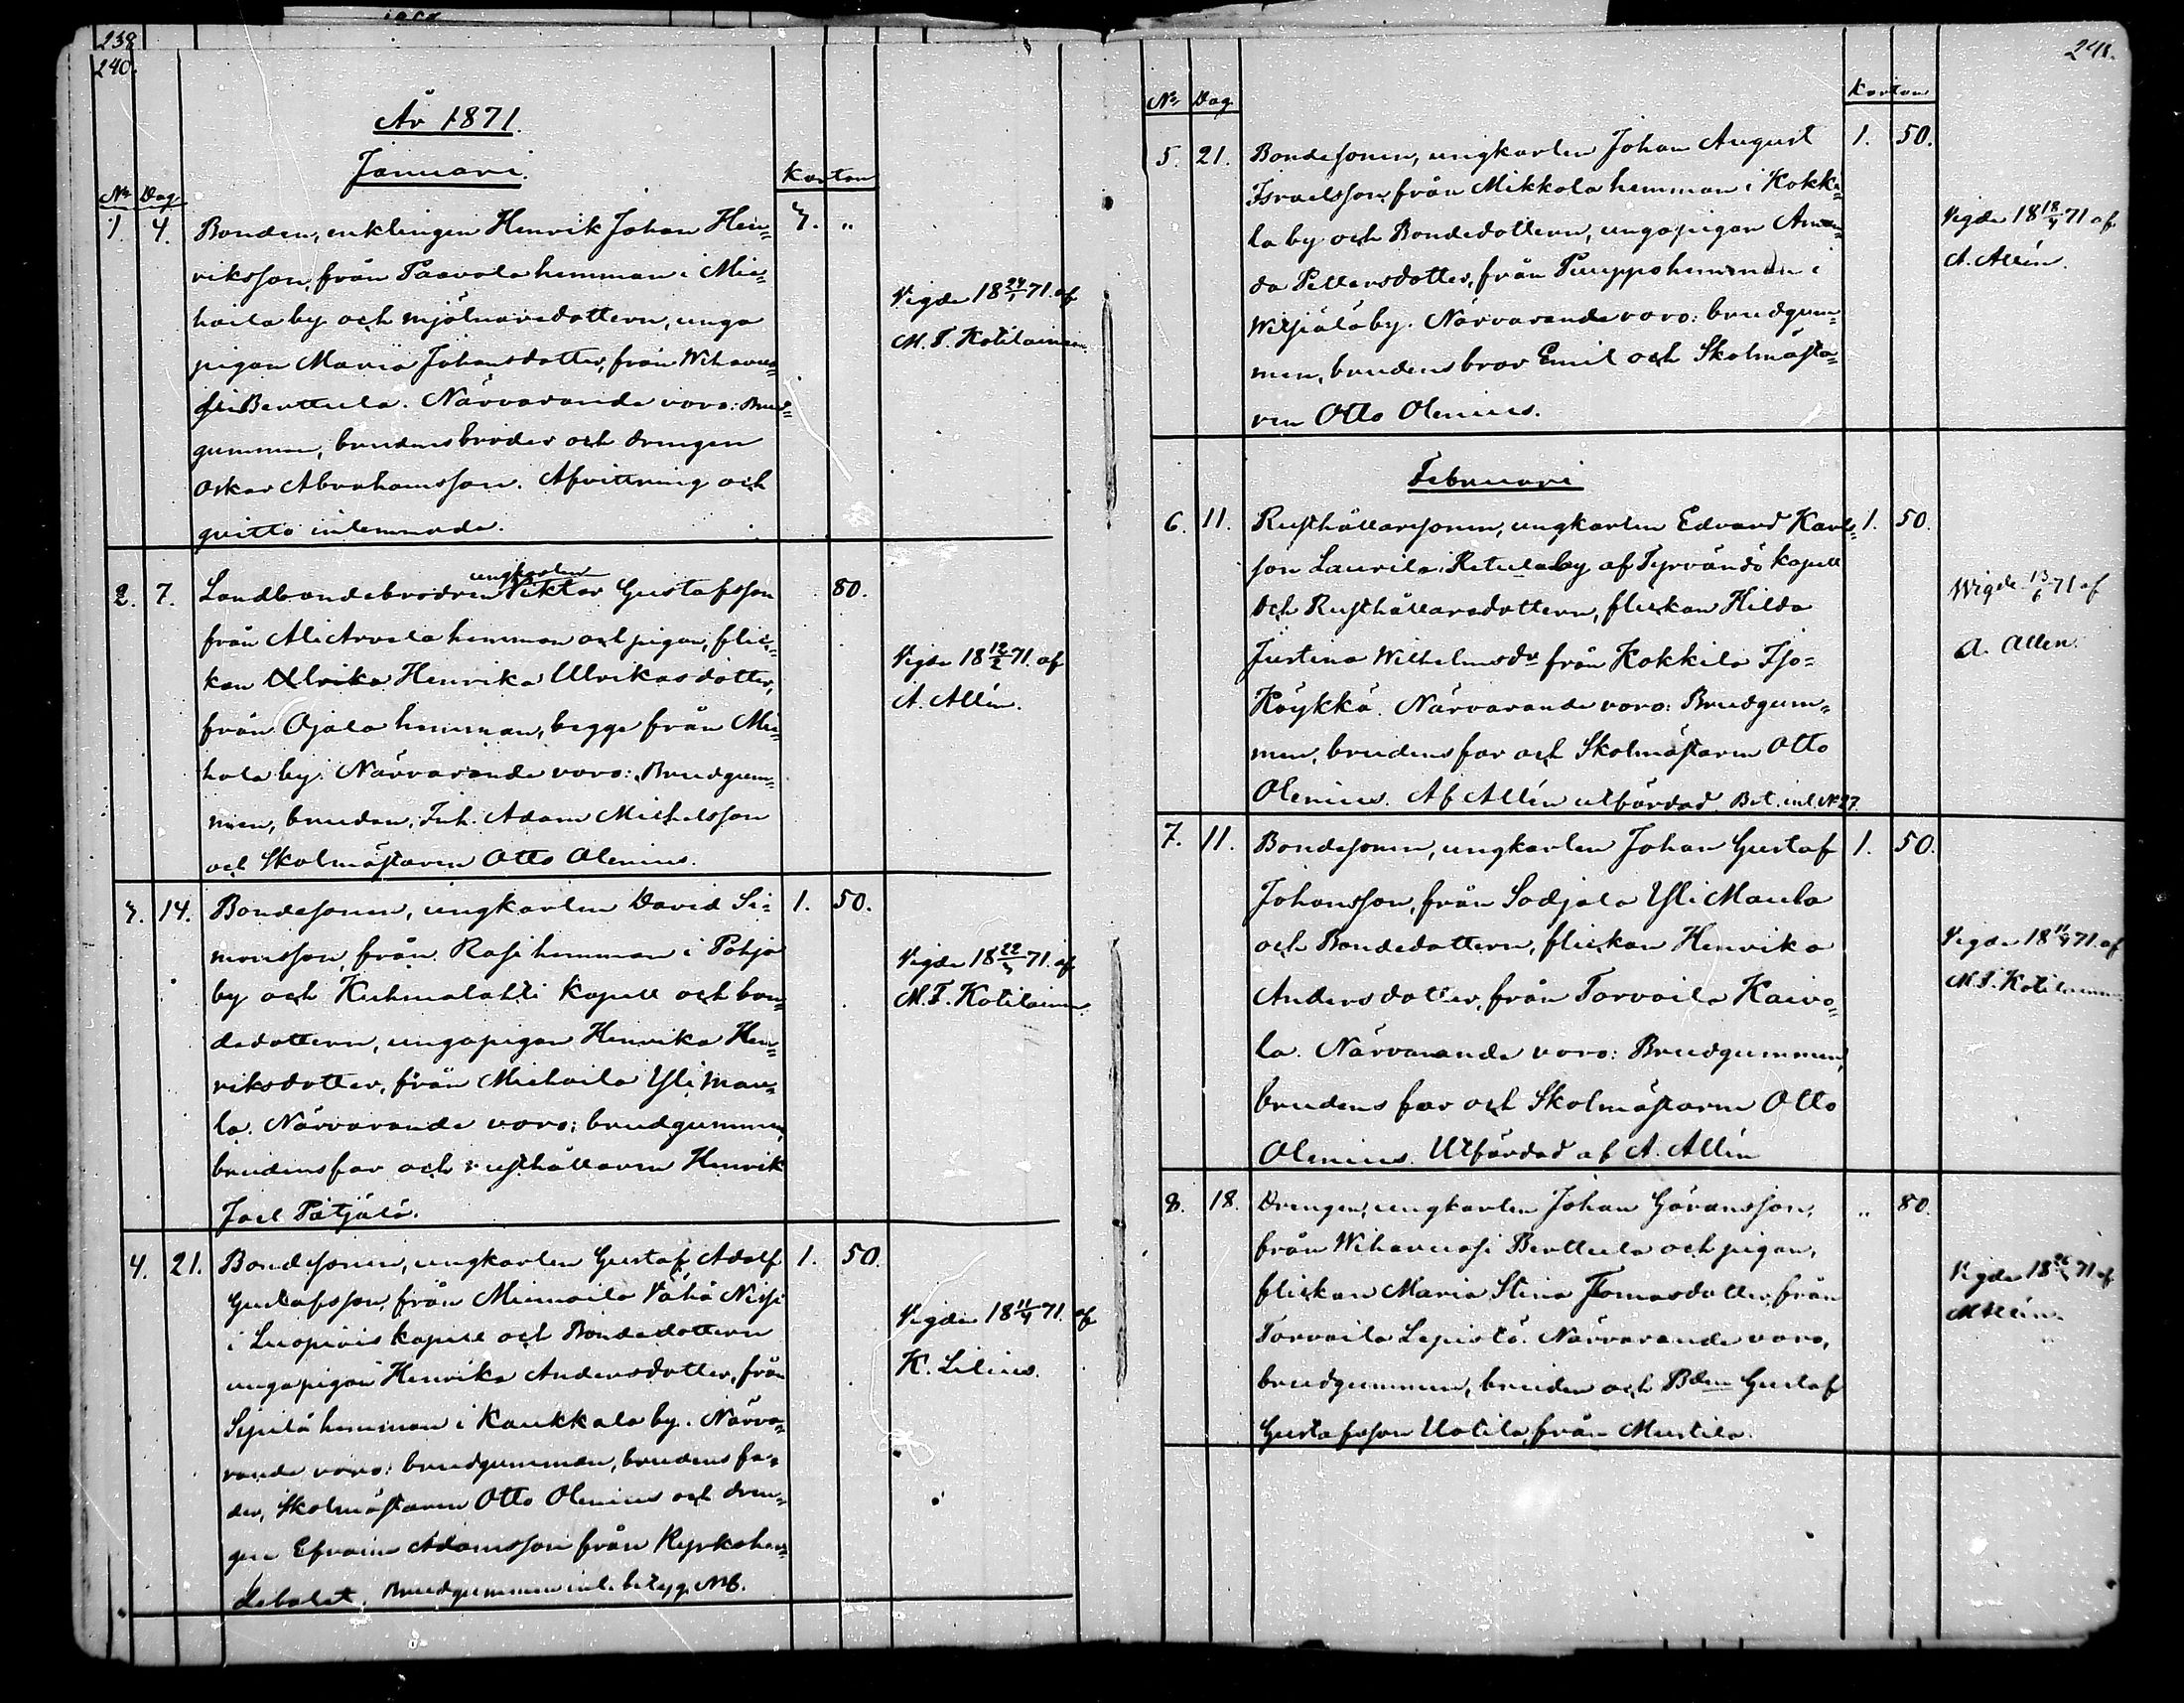 239
240.
År 1871.
Januari.
No Dag Kartan
1. 4. Bonden, enklingen Henrik Johan Hen=
riksson, från Paavola hemman i Mic=
haila by och mjölnaredottern, unga
pigan Maria Johansdotter, från Wihavuo=
si Berttula. Närvarande voro: Brud=
gummen, brudens broder och drengen
Oskar Abrahamsson. Afvittring och
qvitto inlemnade.
3. "
Vigde 18 24/1 71. af
M. F. Kotilainen.
2. 7. Landbondebrodren ungkarlen Viktor Gustafsson
från Ali Arvela hemman och pigan, flic=
kan Ulrika Henrika Ulrikasdotter,
från Ojala hemman, begge från Mic=
hola by. Närvarande voro: Brudgum=
men, bruden, Inh. Adam Michelsson
och Skolmästaren Otto Olenius.
80.
Vigde 18 12/2 71. af
A. Allén.
3. 14. Bondesonen, ungkarlen David Si=
monsson, från Rasi hemman i Pohja
by och Kuhmalahti kapell och bon=
dedottern, ungapigan Henrika Hen=
riksdotter, från Michaila Yli Mau=
la. Närvarande voro: brudgummen,
brudens far och rusthållaren Henrik
Joel Pätjälä.
1. 50.
Vigde 18 22/3 71. af
M. F. Kotilainen.
4. 21. Bondesonen, ungkarlen Gustaf Adolf
Gustafsson, från Mienoila Vähä Nissi
i Luopiois kapell och Bondedottern
ungapigan Henrika Andersdotter, från
Sepilä hemman i Kaukkala by. Närva=
rande voro: brudgumman, brudens fa=
der, Skolmästaren Otto Olenius och dren=
gen Efraim Adamsson från Kyrkoher=
debolet. Brudgummen inl. betyg N6.
1. 50.
Vigde 18 11/4 71. af
K. Lilius.
241.
No Dag Kartan
5. 21. Bondesonen, ungkarlen Johan August
Israelsson från Mikkola hemman i Kokki=
la by och Bondedottern, ungapigan Aman=
da Pettersdotter, från Puuppo hemman i
Witsiälä by. Närvarande voro: brudgum=
men, brudens bror Emil och Skolmästa=
ren Otto Olenius.
1. 50.
Vigde 18 18/4 71 af
A. Allén.
Februari
6. 11. Rusthållaresonen, ungkarlen Edvard Karls=
son Laurila Retula by af Tyrväntö kapell
och Rusthållaredottern, flickan Hilda
Justina Wilhelmsdr från Kokkila Iso=
Köykkä. Närvarande voro: Brudgum=
men, brudens far och Skolmästaren Otto
Olenius. Af Allén utfärdad. Bet. inl. N 27.
1. 50.
Wigde 13/6 71 af
A. Allén.
7. 11. Bondesonen, ungkarlen Johan Gustaf
Johansson, från Sadjala Yli Maula
och Bondedottern, flickan Henrika
Andersdotter, från Torvoila Kaivo=
la. Närvarande voro: Brudgummen,
brudens far och Skolmästaren Otto
Olenius. Utfärdad af A. Allén
1. 50.
Vigde 18 11/4 71. af
M. F. Kotilainen
8. 18. Drengen, ungkarlen Johan Göransson,
från Wihavuosi Berttula och pigan,
flickan Maria Stina Tomasdotter från
Torvoila Lepistö. Närvarande voro,
brudgummen, bruden och Bden Gustaf
Gustafsson Uotila från Mustila.
" 80.
Vigde 71 af